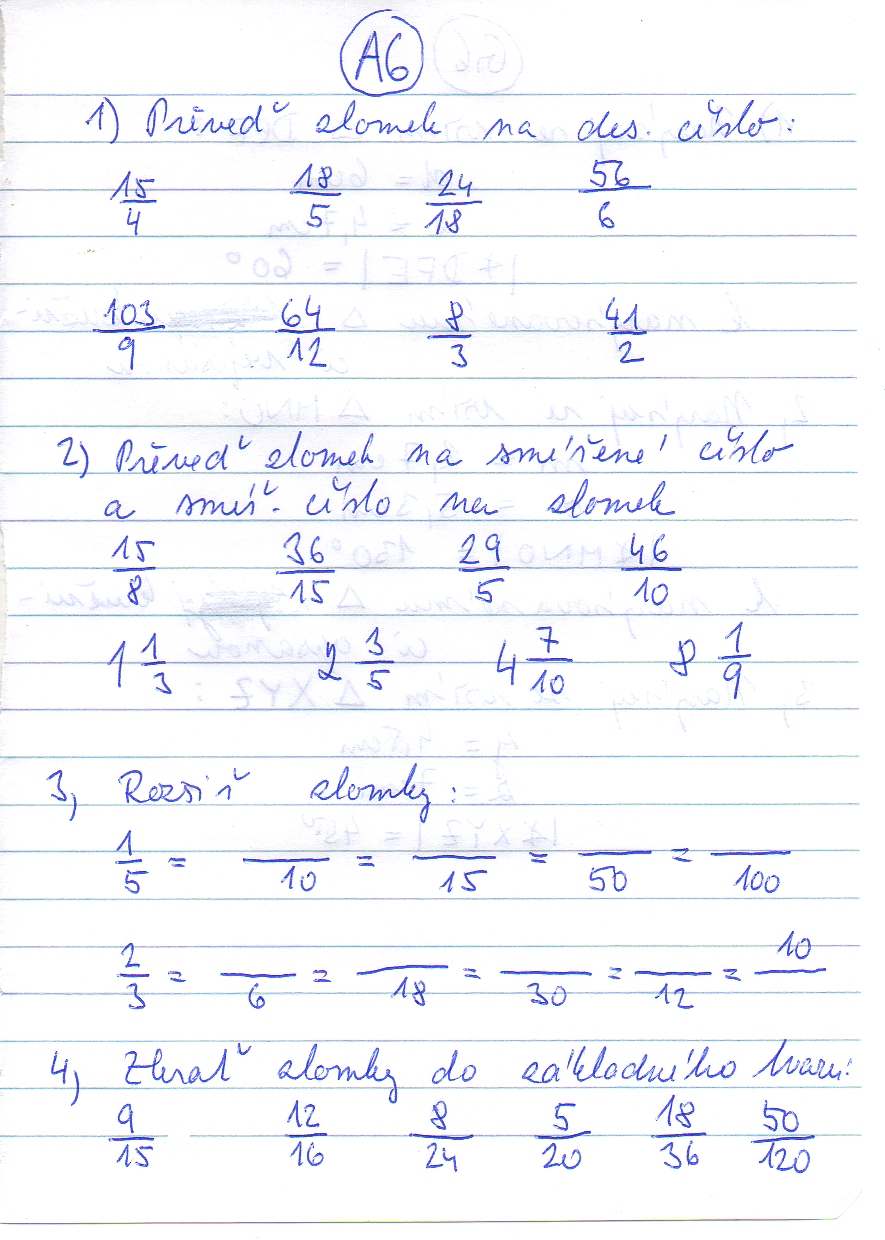 A6
1) Převeď zlomek na des. číslo:
15/4 18/5 24/18 56/6
103/9 64/12 8/3 41/2
2) Převeď zlomek na smíšené číslo
a smíš. číslo na zlomek
15/8 36/15 29/5 46/10
1 1/3 2 3/5 4 7/10 8 1/9
3, Rozšiř zlomky:
1/5 = __/10 = __/15 = __/50 = __/100
2/3 = __/6 = __/18 = __/30 = __/12 = 10/__
4, Zkrať zlomky do základního tvaru:
9/15 12/16 8/24 5/20 18/36 50/120